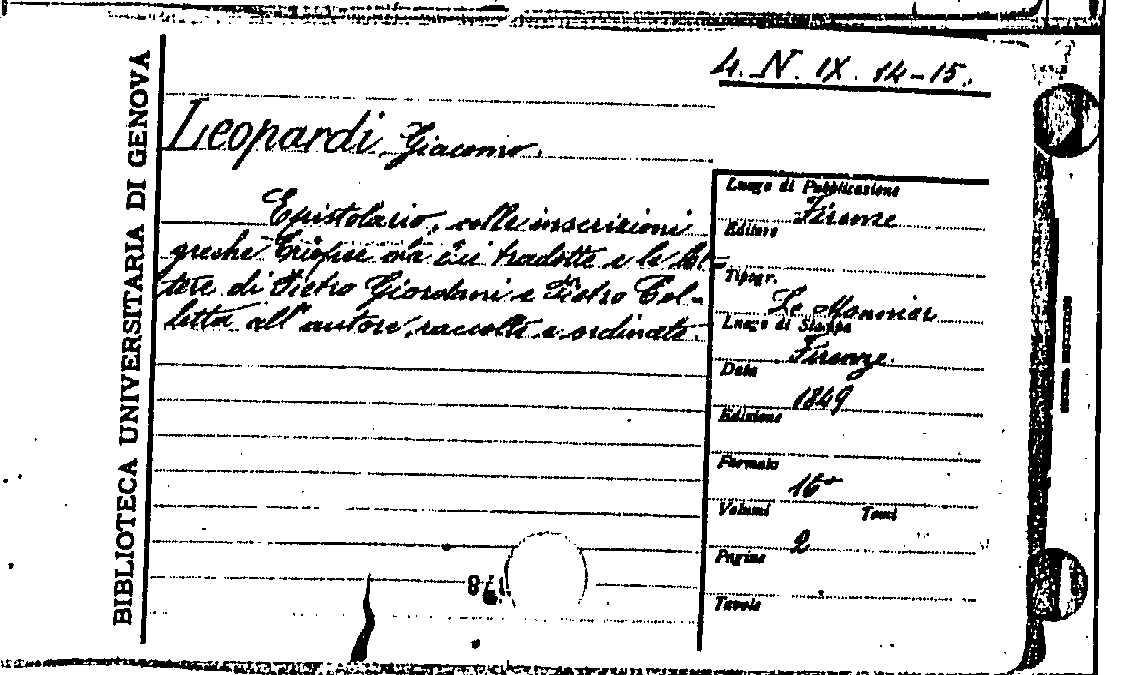 BIBLIOTECA UNIVERSITARIA DI GENOVA
4. N. IX. 14-15.
Leopardi Giacomo.
Epistolario, colle inscrizioni
greche Triopee da lui tradotte e le let-
tere di Pietro Giordani e Pietro Col-
letta all'autore, raccolte e ordinate.
Luogo di Pubblicazione
Firenze
Editore
Tipogr.
Le Monnier
Luogo di Stampa
Firenze.
Data
1849
Edizione
Formato
16°
Volumi Tomi
2
Pagine
Tavole